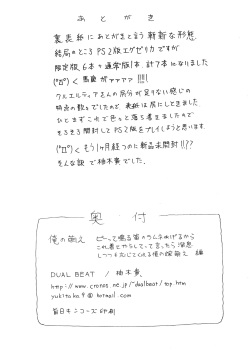 あとがき
裏表紙にあとがきと言う斬新な形態
結局のところPS2版エグゼリカですが
限定版6本+通常版1本、計7本になりました
(°ロ°)く馬鹿がァァァァ!!!!
クルエルティアさんの成分が足りない感じの
時点の数々でしたので 表紙は尻にしときました
ひとまずこれで色々と落ち着きましたので
そろそろ開封してPS2版をプレイしようと思います
(°ロ°)くもう1ヶ月経つのに新品未開封!!??
そんな訳で柚木貴でした。
奥付
俺の萌え
これ着とやらしてって言ったら溜息
しつつも応じてくれる俺の嫁萌え 編
DUAL BEAT / 柚木貴
http://www.cronos.ne.jp/~dualbeat/top.htm
yukitaka9@hotmail.com
暫日キンコーズ印刷